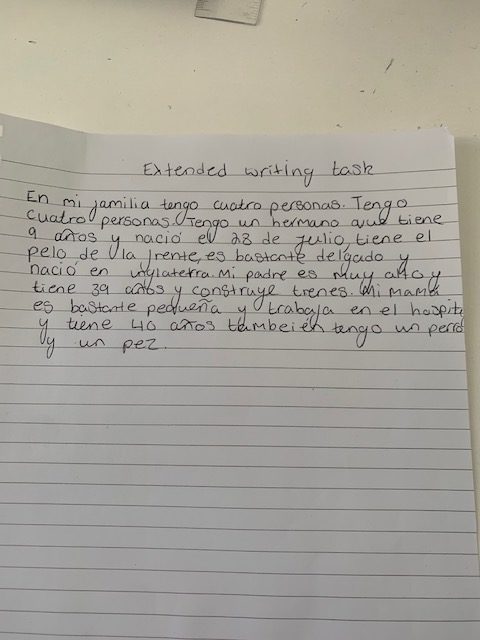 Extended writing task
En mi familia tengo cuatro personas. Tengo
cuatro personas. Tengo un hermano que tiene
9 años y nació el 28 de julio, tiene el
pelo de la frente, es bastante delgado y
nació en inglaterra. Mi padre es muy alto y
tiene 39 años y construye trenes. Mi mamá
es bastante pequeña y trabaja en el hospita
y tiene 40 años tambeién tengo un perro
y un pez.